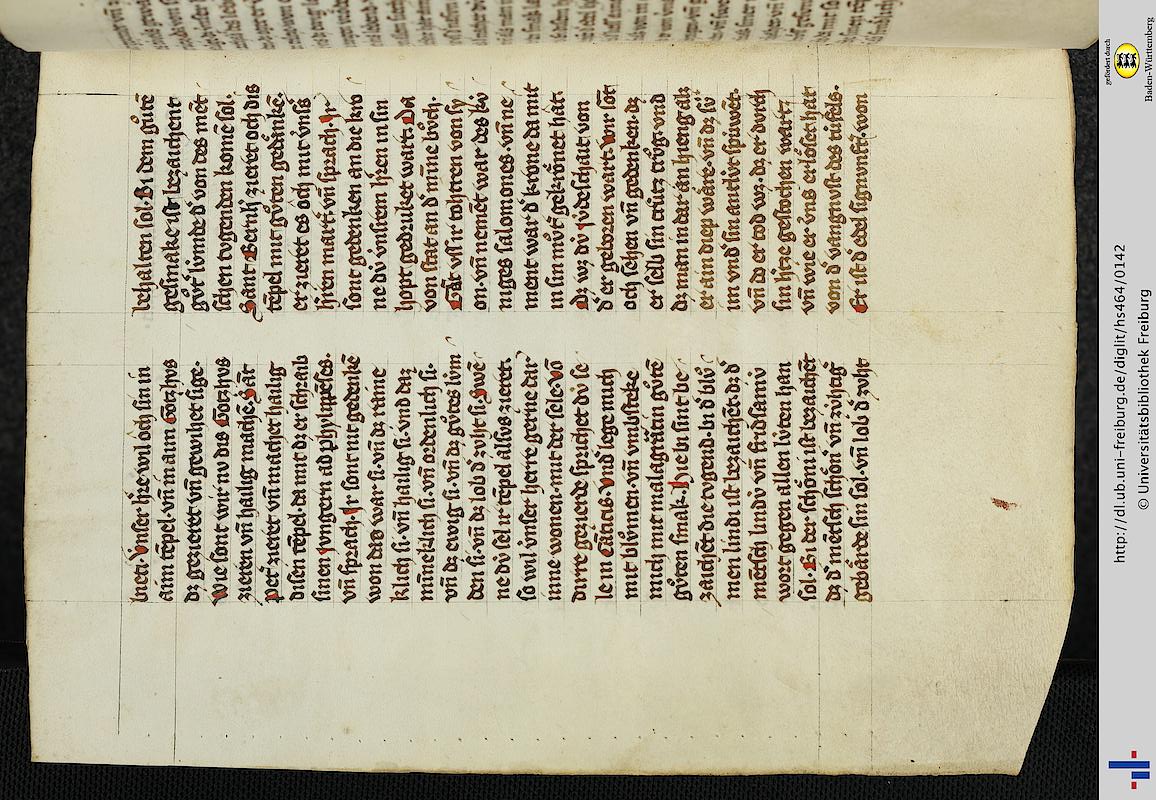 bueti. vnser h̄re wil och sin in
aim tēpel. vn̄ in aim Gotzhvs
dz gezieret vn̄ gewihet sige.
wie sont wir nv dis Gotzhvs
zieren vn̄ hailig mache. Sāt
Pet̄ zieret vn̄ machet hailig
disen tēpel. da mit dz er schraib
sinen jvngern ad phylippēses.
vn̄ sprach. Ir sont nit gedenkē
won daz war si. vn̄ dz raine
klich si. vn̄ hailig si. vnd daz
minneklich si. vn̄ ordenlich si.
vn̄ dz ewig si. vn̄ dz gv̊tes lvm
den si. vn̄ dz lob d̓ zvht si. Swē
ne dv sel ir tēpel alsvs zieret.
so wil vnser herre gerne dar
inne wonen. mit der sele. vō
dirre gezierde sprichet dv́ se
le in Cāticis. Vnd lege mich
mit blv̊men. vn̄ vmbsteke
mich mit malagratin gv̊te
gv̊ten smak. Hie bi sint be
zaichēt die tvgend. bi d̓ blv̊
men lindi ist bezaichēt. dz d̓
mētsch lindv́ vn̄ fridsamv́
wort gegen allen lv́ten han
sol. Bi der schōni ist bezaichēt
dz d̓ mēsch schōn vn̄ zv́htig
gebārde sin sol. vn̄ lob d̓ zvht
behalten sol. Bi dem gv̊tē
gesmake ist bezaichent
gv̊t lv́mde d̓ von des mēt
schen tvgenden komē sol.
Sant Bernh̓ zieret och dis
tēpel mit gv̊ten gedānkē.
er zieret es och mit vnss̄
h̄ren mart̓. vn̄ sprach. Ir
sont gedenken an die kro
ne div vnsrem h̄ren in sin
hopt gedruket wart. Da
von stat an d̓ miñe bv̊ch.
Gāt vss ir tohtren von sy
on. vn̄ nemēt war des kv́
niges salomones. vn̄ ne
ment war d̓ krone da mit
in sin mv̊t̓ gekrōnet hat.
Dz wz div jvdeschait von
d̓ er geborn wart. wir sōt
och sehen vn̄ gedenken. dz
er selb sin crv́tz trv̊g. vnd
dz man in dar an hieng als
er ain diep wāre. vn̄ dz si
im vnd̓ sin antlv́t spúwēt.
vn̄ do er tod wz. dz er dvrch
sin h̓tze gestochen wart.
vn̄ wie er vns erlōset hat
von d̓ vāngnvst des túfels.
Er ist d̓ edel signvnft. won
http://dl.ub.uni-freiburg.de/diglit/hs464/0142
© Universitätsbibliothek Freiburg
gefördert durch
Baden-Württemberg